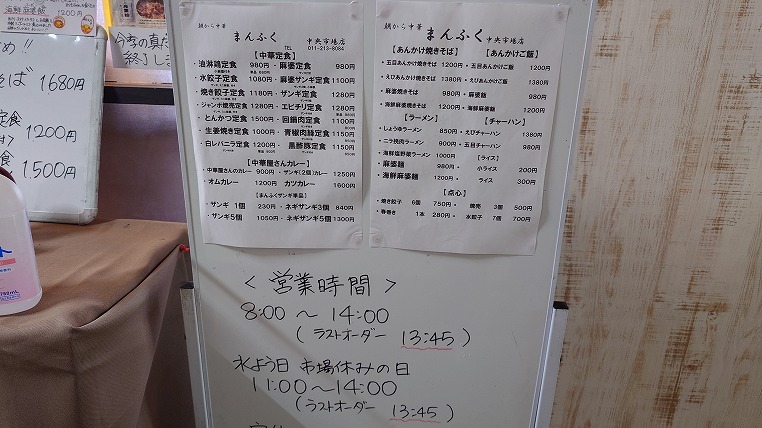 海鮮麻婆飯
1200円
今季の真だ
終了しま
め!!
そば 1680円
定食
1200円
定食
1.500円
朝から中華
まんぷく 中央市場店
TEL 011-213-8084
【中華定食】
・油淋鶏定食 980円
・麻婆定食 980円
・水餃子定食 1080円
・麻婆ザンギ定食 1280円
・焼き餃子定食 1180円
・ザンギ定食 1280円
・ジャンボ焼売定食 1280円
・エビチリ定食 1280円
・とんかつ定食 1200円
・回鍋肉定食 1100円
・生姜焼き定食 1000円
・青椒肉絲定食 1150円
・白レバニラ定食 1250円
・黒酢豚定食 1150円
【中華屋さんカレー】
・中華屋さんのカレー 900円
・ザンギ(2個)カレー 1250円
・オムカレー 1200円
カツカレー 1600円
【まんぷくザンギ単品】
・ザンギ 1個 230円
・ネギザンギ3個 840円
・ザンギ5個 1050円
・ネギザンギ5個 1300円
朝から中華
まんぷく 中央市場店
【あんかけ焼きそば】
・五目あんかけ焼そば 1200円
・えびあんかけ焼そば 1380円
・麻婆焼そば 980円
・海鮮麻婆焼そば 1200円
【あんかけご飯】
・五目あんかけご飯 1200円
・えびあんかけご飯 1380円
・麻婆飯 980円
・海鮮麻婆飯 1200円
【ラーメン】
・しょうゆラーメン 850円
・ニラ挽肉ラーメン 900円
・海鮮塩野菜ラーメン 1000円
・麻婆麺 980円
・海鮮麻婆麺 1200円
【チャーハン】
・えびチャーハン 1380円
・五目チャーハン 980円
【ライス】
・小ライス 200円
・ライス 300円
【点心】
・焼き餃子 6個 750円
・焼売 3個 500円
・春巻き 1本 280円
・水餃子 7個 700円
<営業時間>
8:00 〜 14:00
(ラストオーダー 13:45)
水よう日 市場休みの日
11:00〜14:00
(ラストオーダー 13:45)